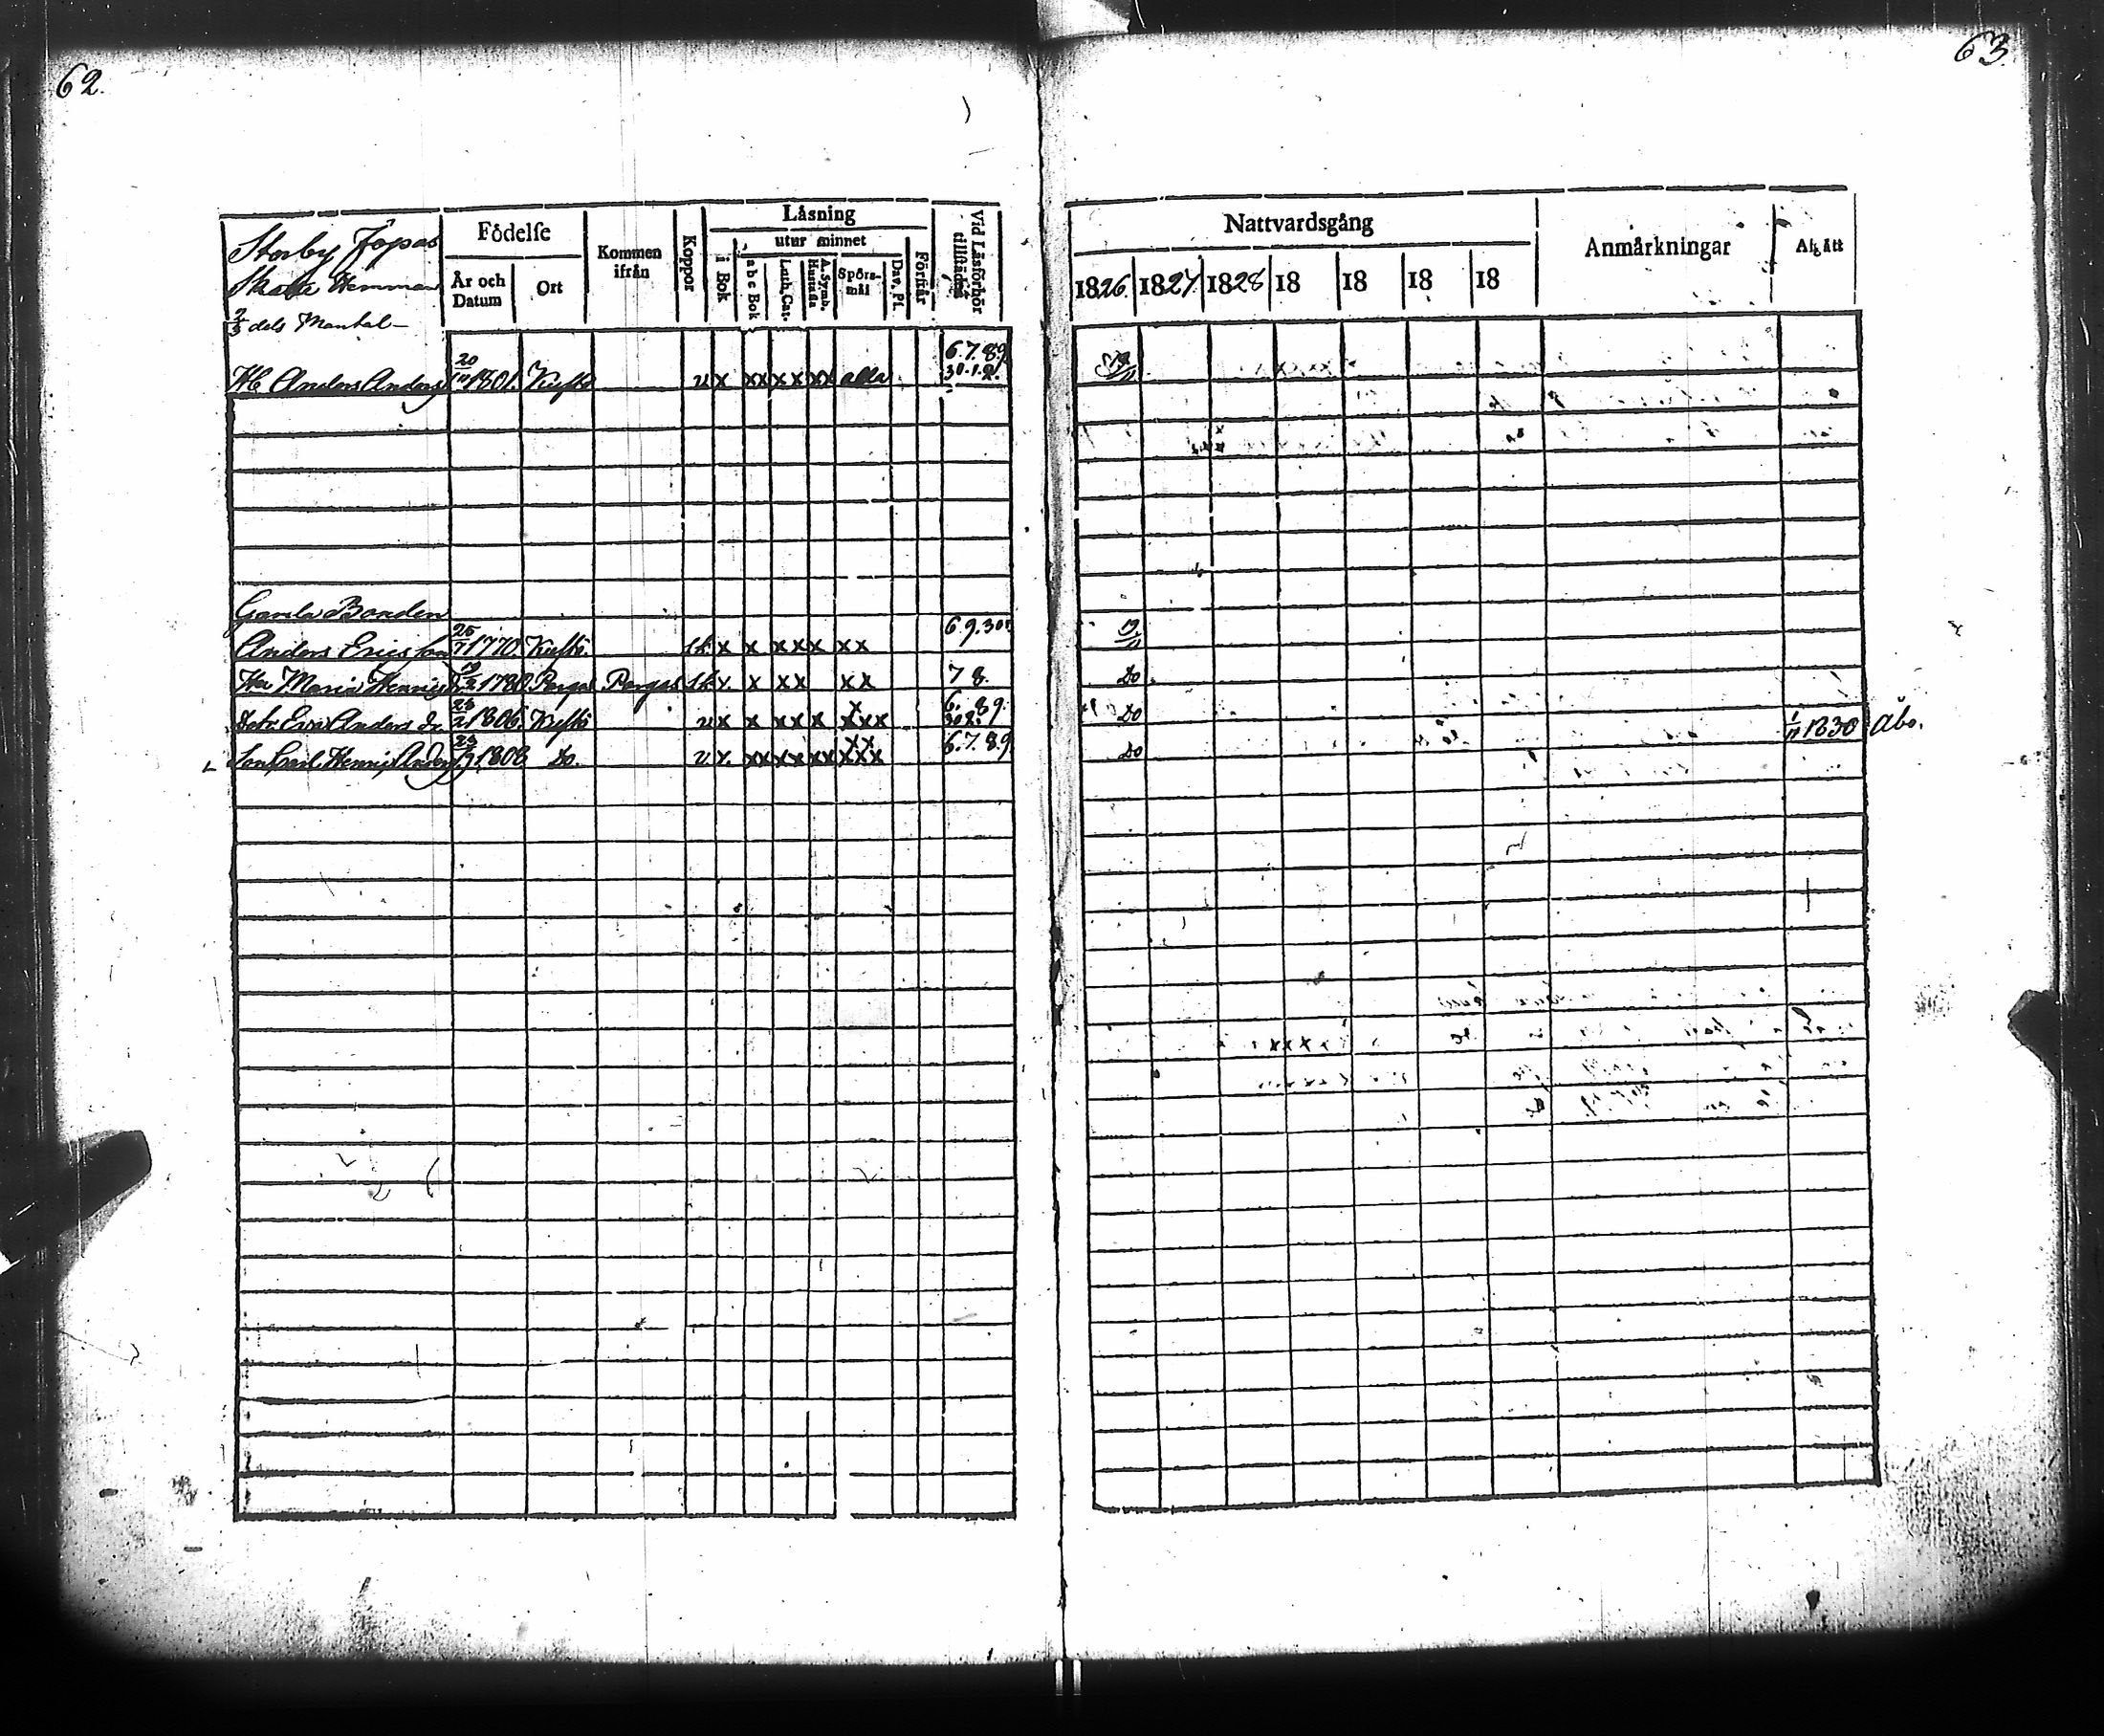 62.
63.
Storby Jopas
Skatte Hemman
2/3 dels Mantal
Födelse
År och Datum
Ort
Kommen ifrån
Koppor
Låsning
i Bok
utur minnet
a b c Bok
Luth. Cat.
A. Symb. Hustafla
Spörs-mål
Dav. Ps.
Förstår
Vid Läsförhör tillstädes
Nattvardsgång
1826. 1827. 1828 18 18 18 18
Anmårkningar
Afgått
Anders Anders 20 1801. u x xx xx xx alla 6.7.8.9. 30.1.2.
Gamla Bonden
Anders Ericsson 1770. x x xx x xx 6 9.30
Maria 19 Pargas Pargas x x xx xx 7 8.
Dotr. Anders dr. 1806. u x x xx x x xxx 6. 8 9. Do
Son Carl Henric Anders 1808 Do. v x. xx xx xx xx xxx 6.7.8.9. Do
Do
1/11 1830 Åbo.